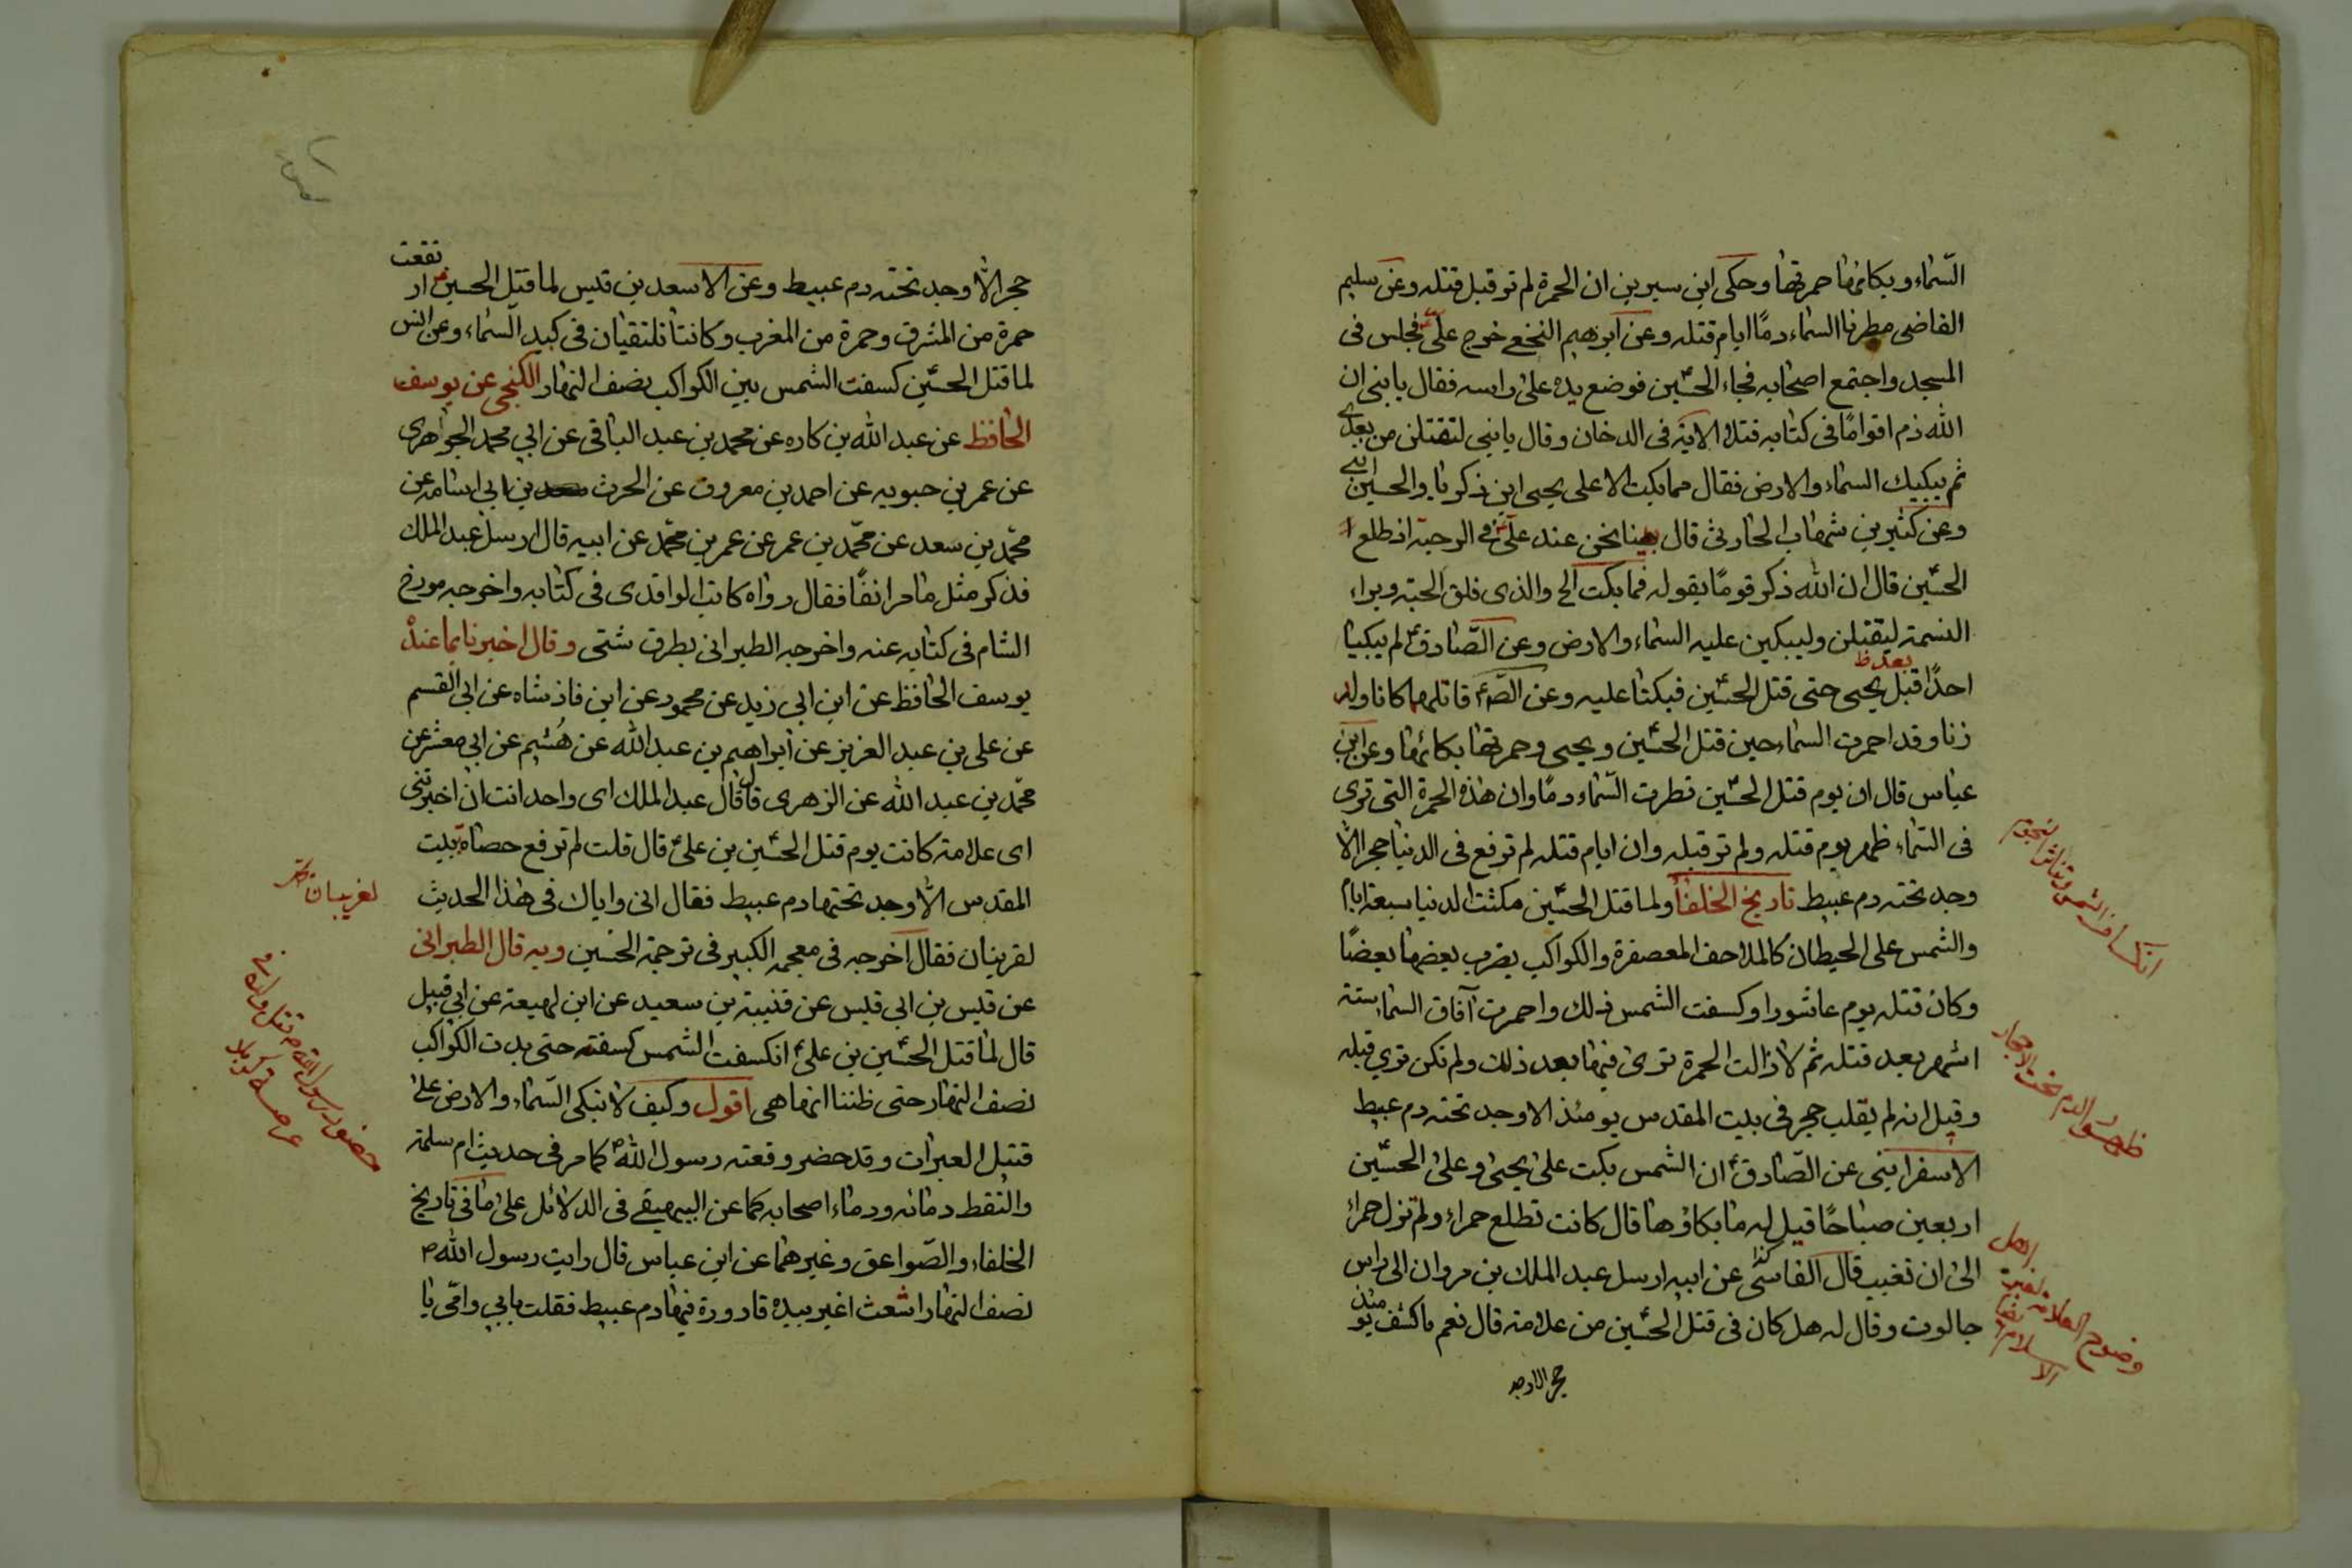 السّماء وبكائها حمرتها وحكى ابن سيرين ان الحمرة لم تر قبل قتله وعن سليم
القاضى مطرنا السماء دمًا ايام قتله وعن ابرهيم النخعى خرج علىّ فجلس فى
المسجد واجتمع اصحابه فجاء الحسين فوضع يده على راسه فقال يا بنى ان
الله ذم اقوامًا فى كتابه فتلا الاية فى الدخان وقال يا بنى لتقتلن من بعدى
ثم يبكيك السماء والارض فقال مما بكت الا على يحيى ابن زكريا والحسين ابنى
وعن كثير بن شهاب الحارثى قال بينا نحن عند علىّ فى الرحبة اذ طلع
الحسين قال ان الله ذكر قومًا بقوله فما بكت الخ والذى فلق الحبة وبراء
النسمة ليقتلن وليبكين عليه السماء والارض وعن الصّادق لم يبكيا
بعد ظ
احدًا قبل يحيى حتى قتل الحسين فبكتا عليه وعن الصّ قاتلهما كانا ولد
زنا وقد احمرت السماء حين قتل الحسين ويحيى وحمرتها بكائها وعن ابن
عباس قال ان يوم قتل الحسين قطرت السّماء دمًا وان هذه الحمرة التى ترى
فى السّماء ظهر يوم قتله ولم تر قبله وان ايام قتله لم ترفع فى الدنيا حجر الّا
وجد تحته دم عبيط تاريخ الخلفاء ولما قتل الحسين مكثت الدنيا سبعة ايام
والشمس على الحيطان كالملاحف المعصفرة والكواكب يضرب بعضها بعضًا
وكان قتله يوم عاشورا وكسفت الشمس ذلك واحمرت آفاق السماء ستة
اشهر بعد قتله ثم لا زالت الحمرة ترى فيها بعد ذلك ولم تكن ترى قبله
وقيل انه لم يقلب حجر فى بيت المقدس يومئذ الا وجد تحته دم عبيط
الاسفراينى عن الصّادق ان الشمس بكت على يحيى وعلى الحسين
اربعين صباحًا قيل له ما بكاؤها قال كانت تطلع حمراء ولم تزل حمراء
الى ان تغيب قال الفاسى كذا عن ابيه ارسل عبد الملك بن مروان الى راس
جالوت وقال له هل كان فى قتل الحسين من علامة قال نعم ما كشف يومئذ
حجر الا وجد
انكساف الشمس وتناثر النجوم
ظهور الدم تحت الاحجار
وضوح العلامة لغير اهل الاسلام ايضا
نقعت
حجر الّا وجد تحته دم عبيط وعن الاسعد بن قيس لما قتل الحسين ار
حمرة من المشرق وحمرة من المغرب وكانتا تلتقيان فى كبد السّماء وعن انس
لما قتل الحسين كسفت الشمس بين الكواكب نصف النهار الكنجى عن يوسف
الحافظ عن عبد الله بن كاره عن محمد بن عبد الباقى عن ابي محمد الجواهرى
عن عمر بن حبويه عن احمد بن معروف عن الحرث بن ابي اسامة عن
محمّد بن سعد عن محمّد بن عمر عن عمر بن محمّد عن ابيه قال ارسل عبد الملك
فذكر مثل ما مر انفًا فقال رواه كاتب الواقدى فى كتابه واخرجه مورخ
الشام فى كتابه عنه واخرجه الطبرانى بطرق شتى وقال اخبرنا بما عنده
يوسف الحافظ عن ابن ابي زيد عن محمود عن ابن فاذشاه عن ابى القسم
عن على بن عبد العزيز عن ابراهيم بن عبد الله عن هُشيم عن ابي معشر عن
محمّد بن عبد الله عن الزهرى قال قال عبد الملك اى واحد انت ان اخبرتنى
اى علامة كانت يوم قتل الحسين بن على قال قلت لم ترفع حصاة ببيت
المقدس الّا وجد تحتها دم عبيط فقال انى واياك فى هذا الحديث
لقرينان فقال اخرجه فى معجمه الكبير فى ترجمة الحسين وبه قال الطبرانى
عن قيس بن ابي قيس عن قتيبة بن سعيد عن ابن لهيعة عن ابي قبيل
قال لما قتل الحسين بن على انكسفت الشمس كسفة حتى بدت الكواكب
نصف النهار حتى ظننا انها هى اقول وكيف لا تبكى السّماء والارض على
قتيل العبرات وقد حضر وقعته رسول الله كما مر فى حديث ام سلمة
والتقط دمائه ودماء اصحابه كما عن البيهقى فى الدلائل على ما فى تاريخ
الخلفاء والصّواعق وغيرهما عن ابن عباس قال رايت رسول الله
نصف النهار اشعث اغبر بيده قارورة فيها دم عبيط فقلت بابي وامّى يا
لغريبان
حضور رسول الله ص قتل ولده فى
عرصة كربلا